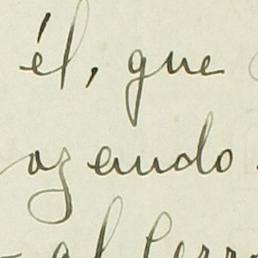 él, que
ozando.
al Cerro